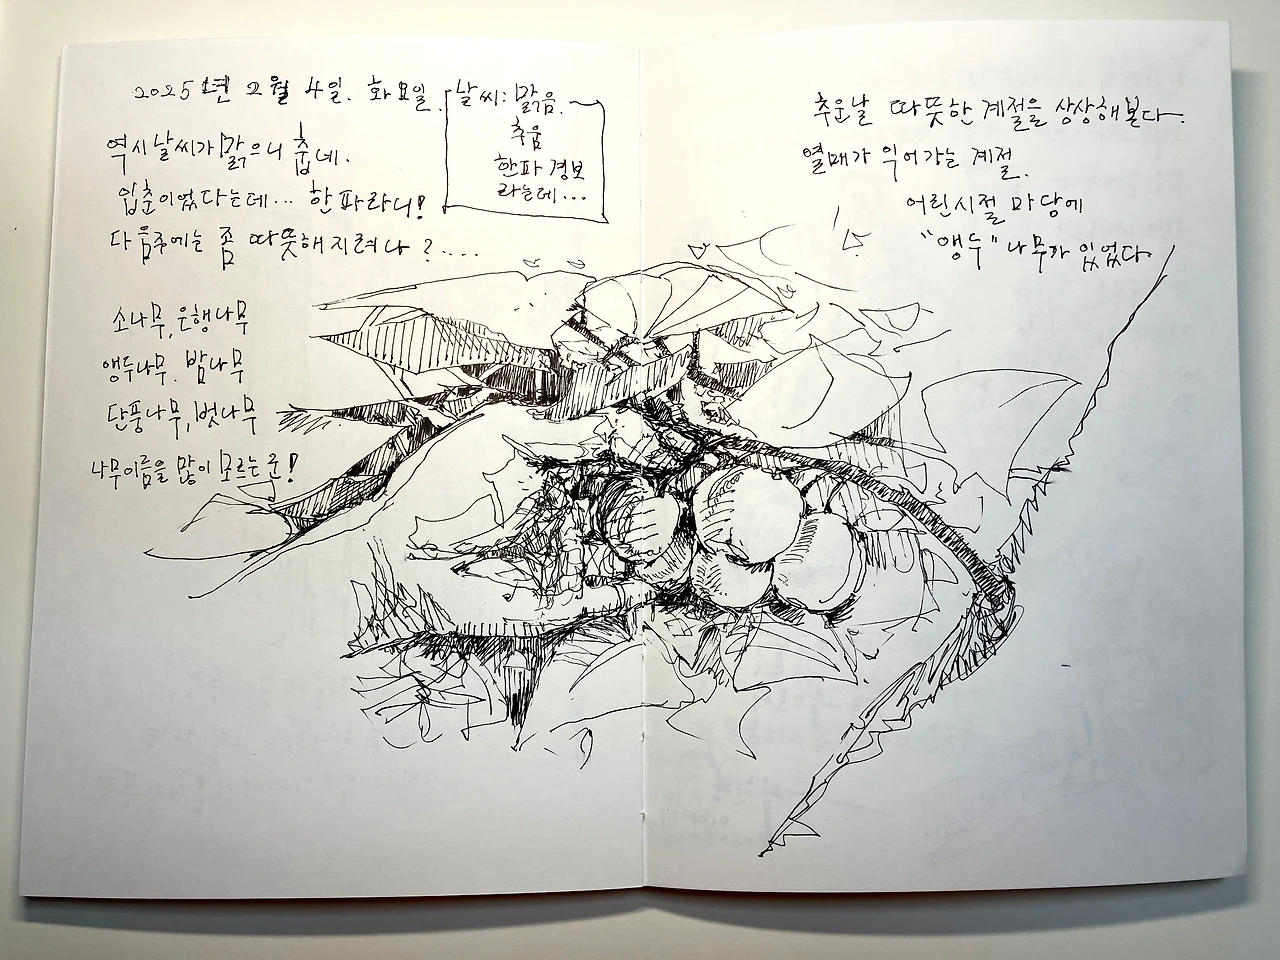 2025년 2월 4일. 화요일.
날씨: 맑음.
추움
한파 경보
라는데...
역시 날씨가 맑으니 춥네.
입춘이었다는데... 한파라니!
다음주에는 좀 따뜻해지려나?....
소나무, 은행나무
앵두나무. 밤나무
단풍나무, 벚나무
나무이름을 많이 모르는군!
추운날 따뜻한 계절을 상상해본다.
열매가 익어가는 계절.
어린시절 마당에
"앵두"나무가 있었다